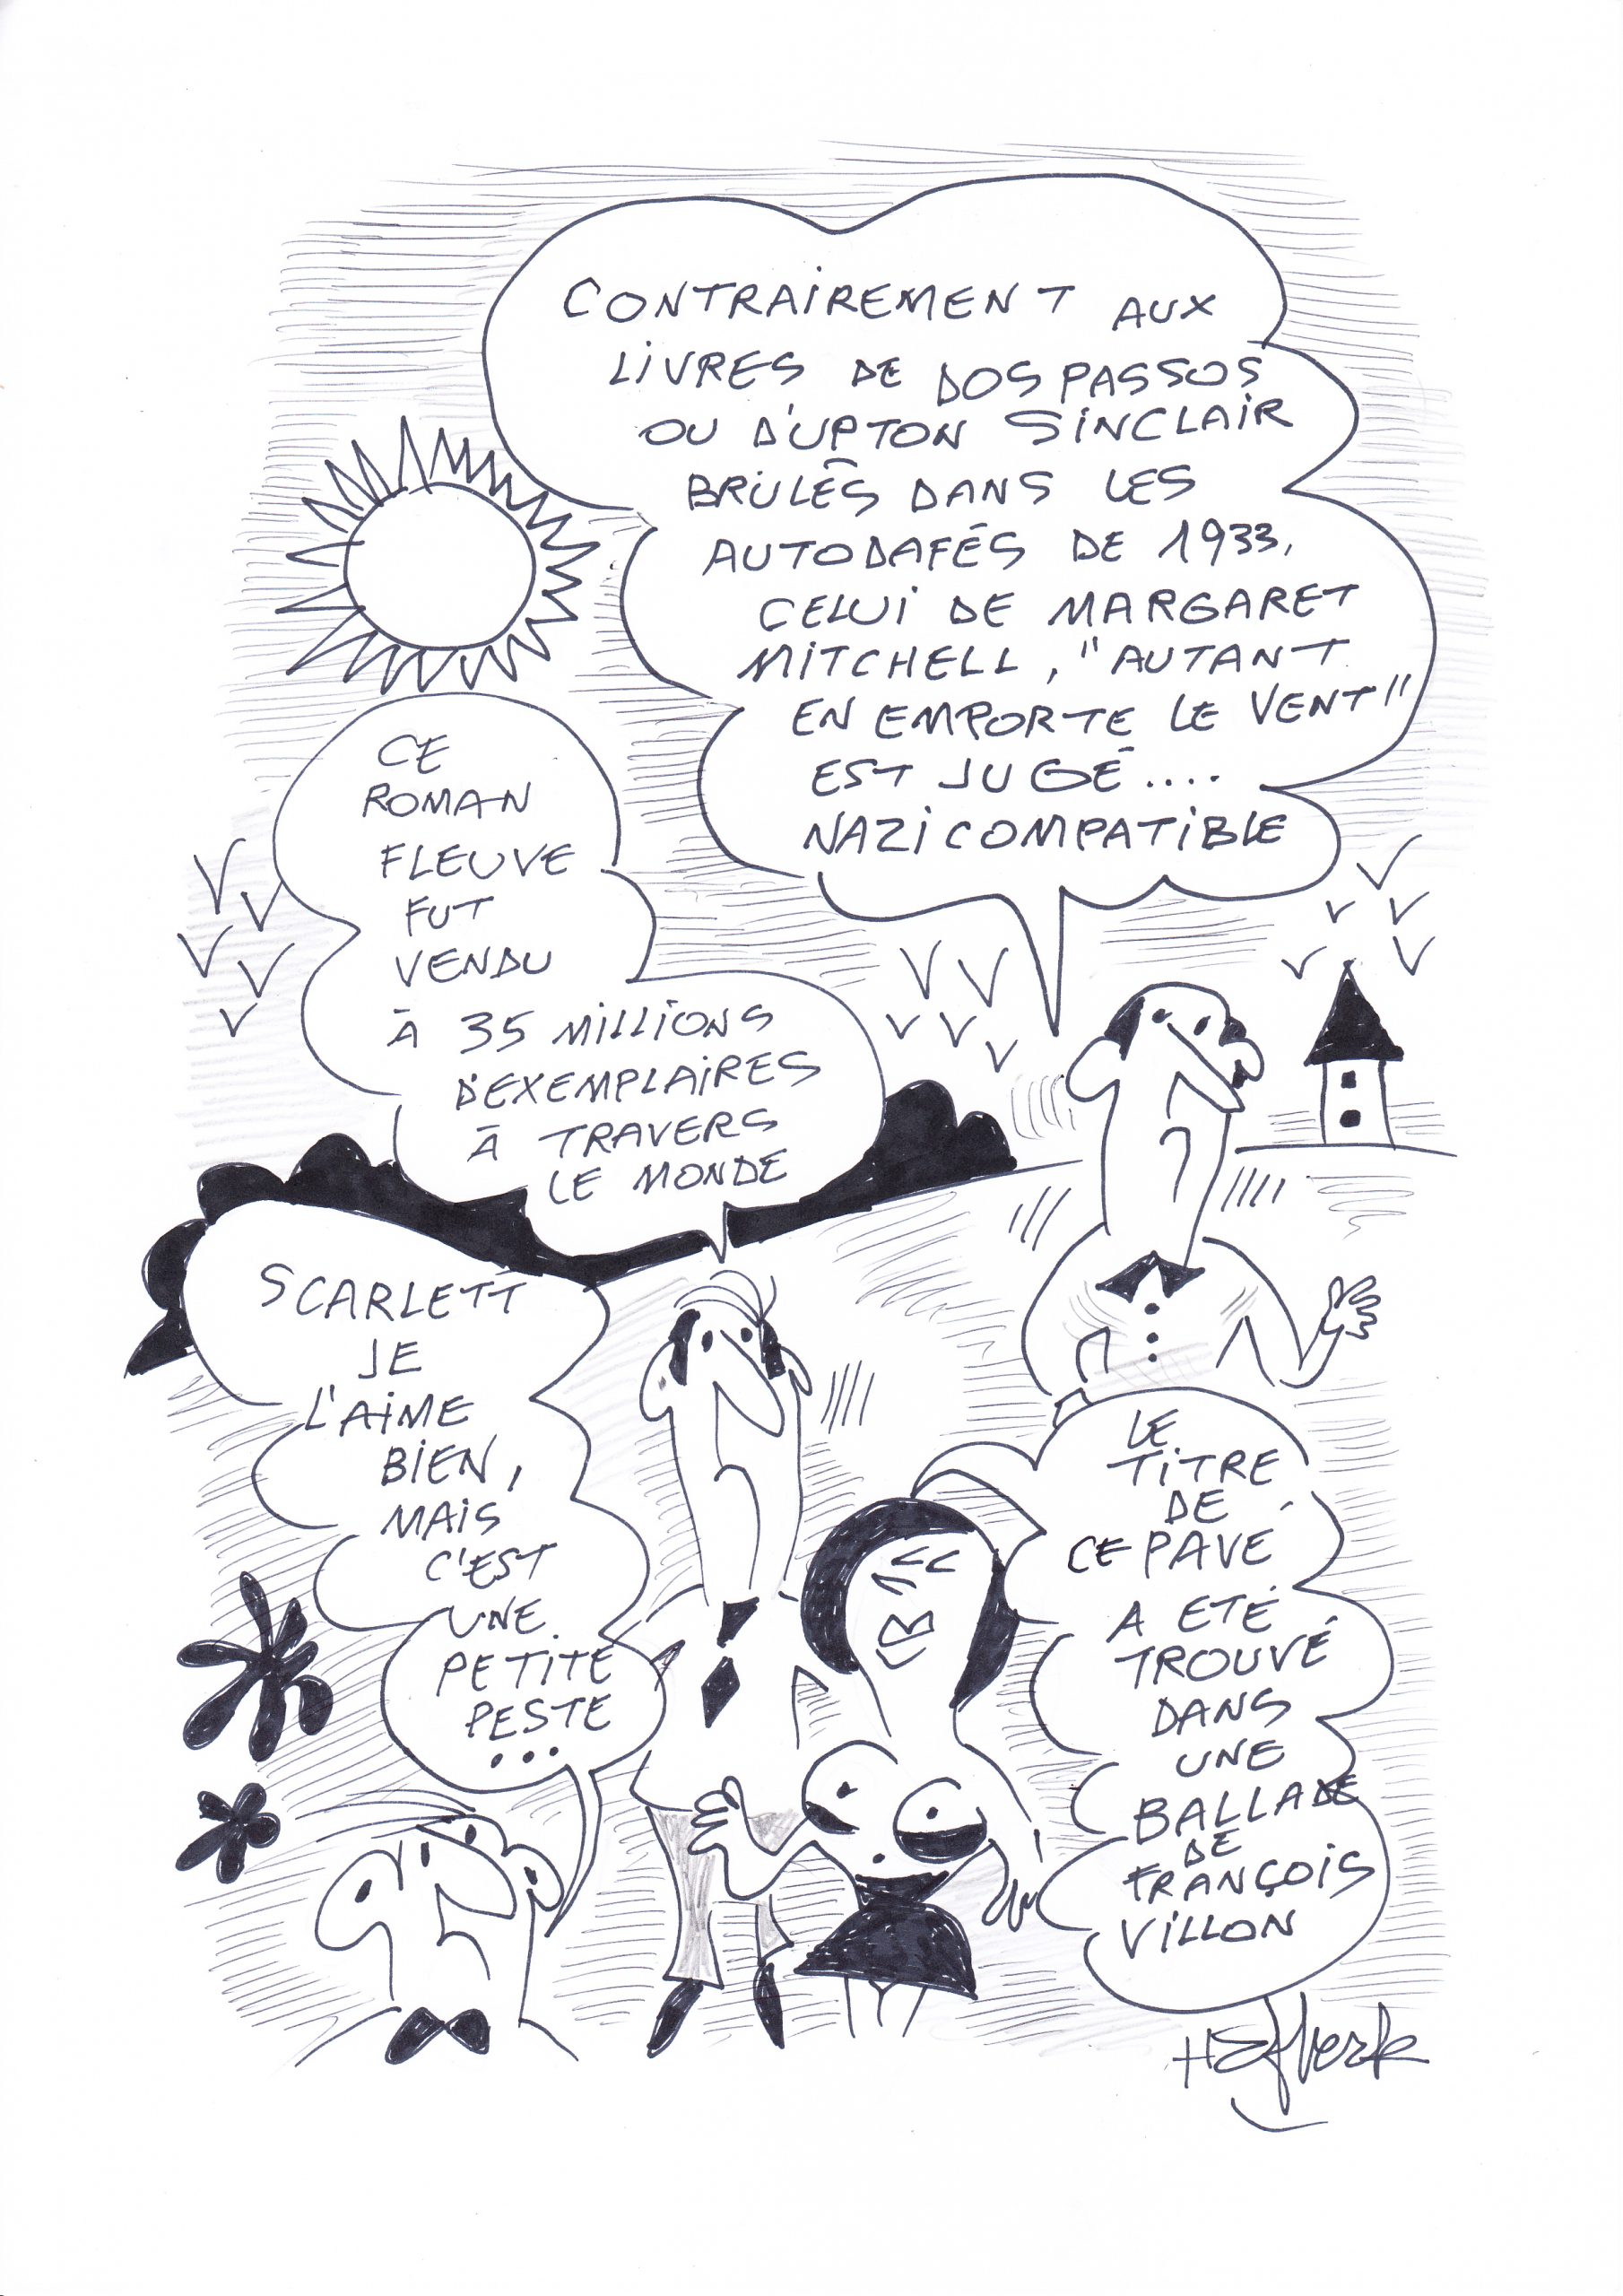 CONTRAIREMENT AUX
LIVRES DE DOS PASSOS
OU D'UPTON SINCLAIR
BRÛLÉS DANS LES
AUTODAFÉS DE 1933,
CELUI DE MARGARET
MITCHELL, "AUTANT
EN EMPORTE LE VENT"
EST JUGÉ....
NAZICOMPATIBLE
CE
ROMAN
FLEUVE
FUT
VENDU
À 35 MILLIONS
D'EXEMPLAIRES
À TRAVERS
LE MONDE
SCARLETT
JE
L'AIME
BIEN,
MAIS
C'EST
UNE
PETITE
PESTE
...
LE
TITRE
DE
CE PAVÉ
A ETÉ
TROUVÉ
DANS
UNE
BALLADE
DE
FRANÇOIS
VILLON